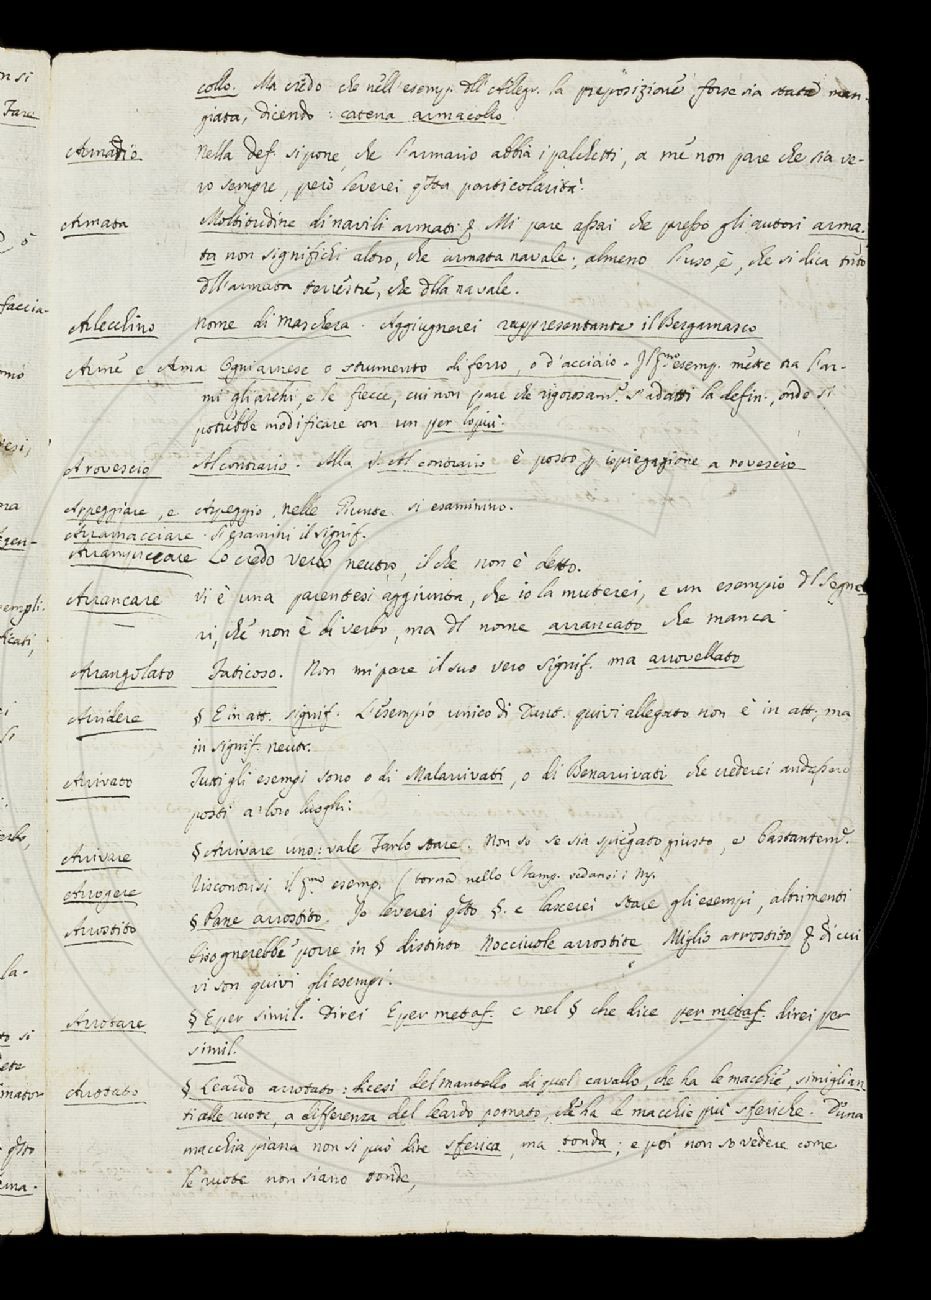 collo. Ma credo che nell'esemp. dll'Allegr. la preposizione forse sia stata man-
giata, dicendo: catena armacollo
Armadio Nella def. si pone, che l'armario abbia i palchetti, a me non pare che sia ve-
ro sempre, però leverei qsta particolarità.
Armata Moltitudine di navili armati &. Mi pare assai che presso gli autori arma-
ta non significhi altro, che armata navale; almeno l'uso è, che si dica tanto
dll'armata terrestre, che dlla navale.
Arlecchino Nome di maschera. Aggiugnerei rappresentante il Bergamasco
Arme e Arma Ogni arnese o strumento di ferro, o d'acciaio. Il pmo esemp. mette tra l'ar-
mi gli archi, e le frecce, cui non pare che rigorosamte. s'adatti la defin., onde si
potrebbe modificare con un per lo più.
A rovescio Al contrario. Alla v. Al contrario è posto p ispiegazione a rovescio
Arpeggiare, e Arpeggio, nelle Giunte si esaminino.
Arramacciare. Si esamini il signif.
Arrampiccare Lo credo verbo neutro, il che non è detto.
Arrancare Vi è una parentesi aggiunta, che io la muterei, e un esempio dl Segne-
ri, che non è di verbo, ma dl nome arrancato che manca
Arrangolato Faticoso. Non mi pare il suo vero signif. ma arrovellato
Arridere § E in att. signif. L'esempio unico di Dant. quivi allegato non è in att., ma
in signif. neutr.
Arrivato Tutti gli esempi sono o di Malarrivati, o di Benarrivati che crederei andassero
posti a' loro luoghi:
Arrivare § Arrivare uno: vale Farlo stare. Non so se sia spiegato giusto, e bastantemte.
Arrogere Riscontrisi il pmo esempi (torna nello Stamp. vedansi i Mss.
Arrostito § Pane arrostito. Io leverei qsto §. e lascerei stare gli esempi, altrimenti
bisognerebbe porre in § distinto Nocciuole arrostite Miglio arrostito & di cui
vi son quivi gli esempi.
Arrotare § E per simil. Direi E per metaf. e nel § che dice per metaf. direi per
simil.
Arrotato § Leardo arrotato: dicesi del mantello di quel cavallo, che ha le macchie, simiglian-
ti alle ruote, a differenza del leardo pomato, che ha le macchie più sferiche. D'una
macchia piana non si può dire sferica, ma tonda; e poi non so vedere come
le ruote non siano tonde,